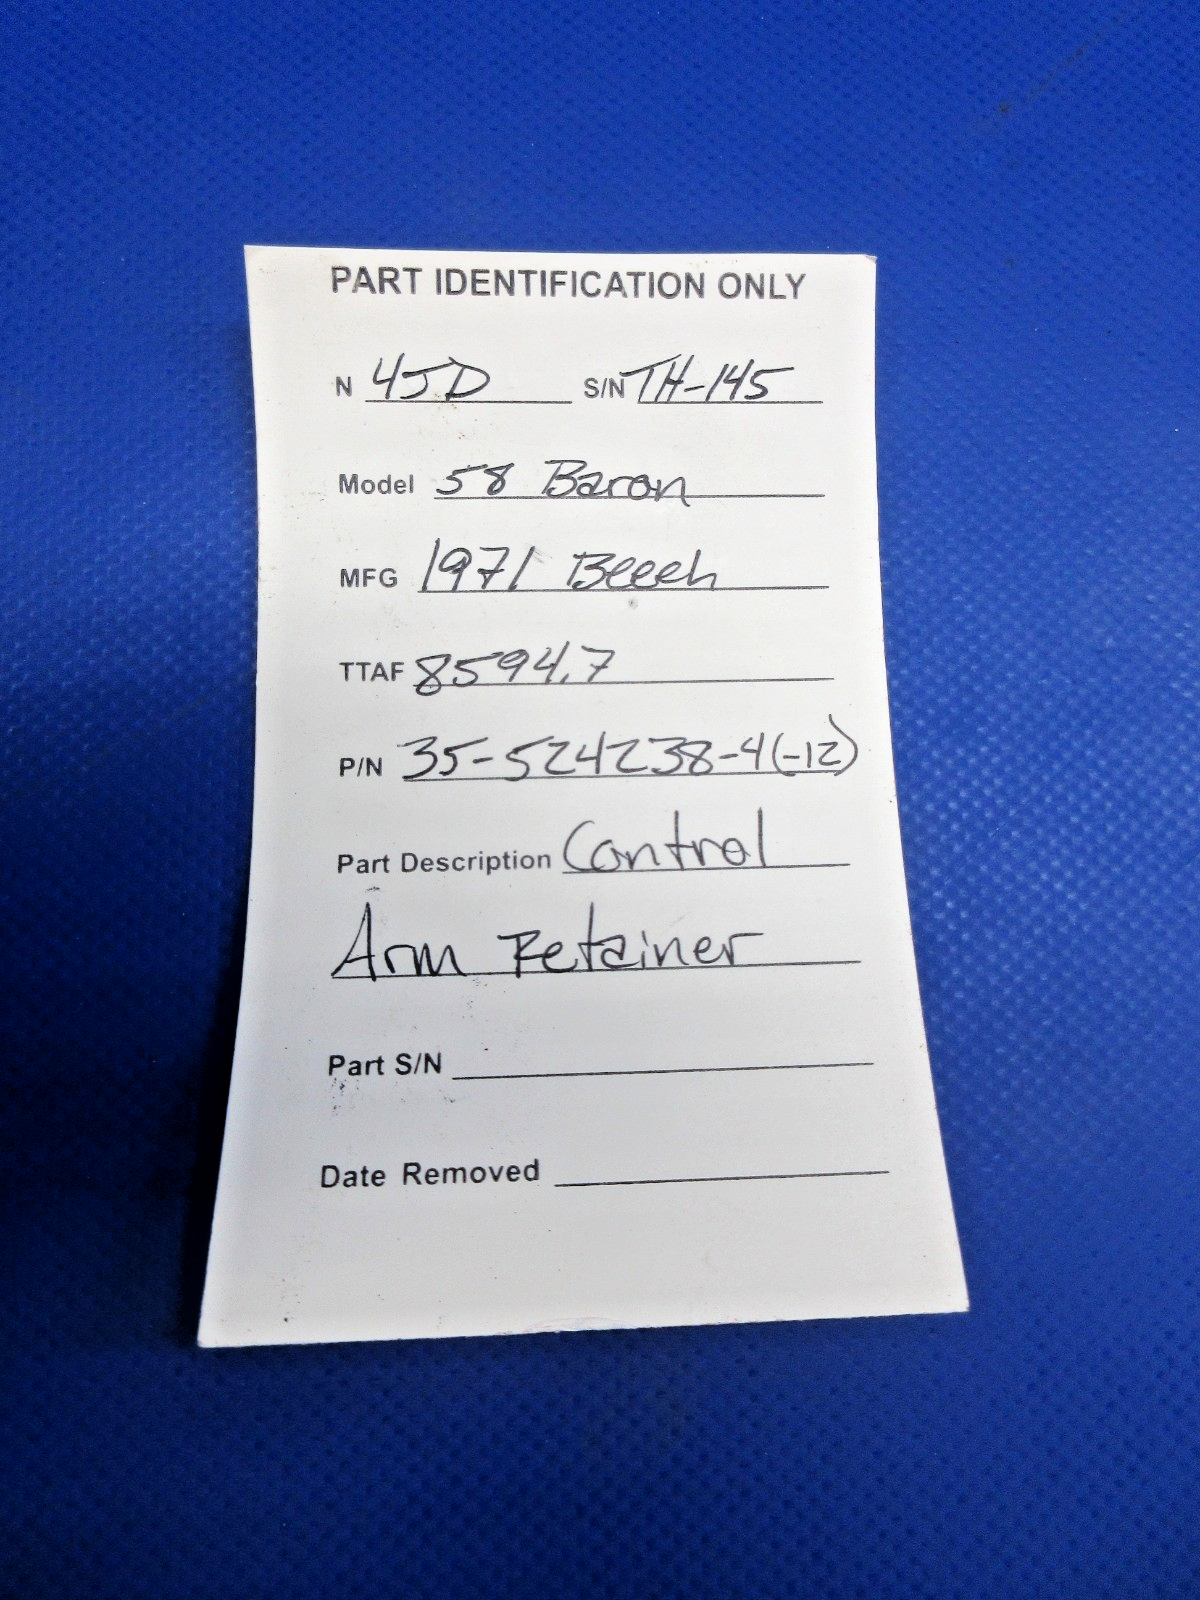 PART IDENTIFICATION ONLY
N 4JD S/N TH-145
Model 58 Baron
MFG 1971 Beech
TTAF 8594.7
P/N 35-524238-4(-12)
Part Description Control
Arm Retainer
Part S/N
Date Removed